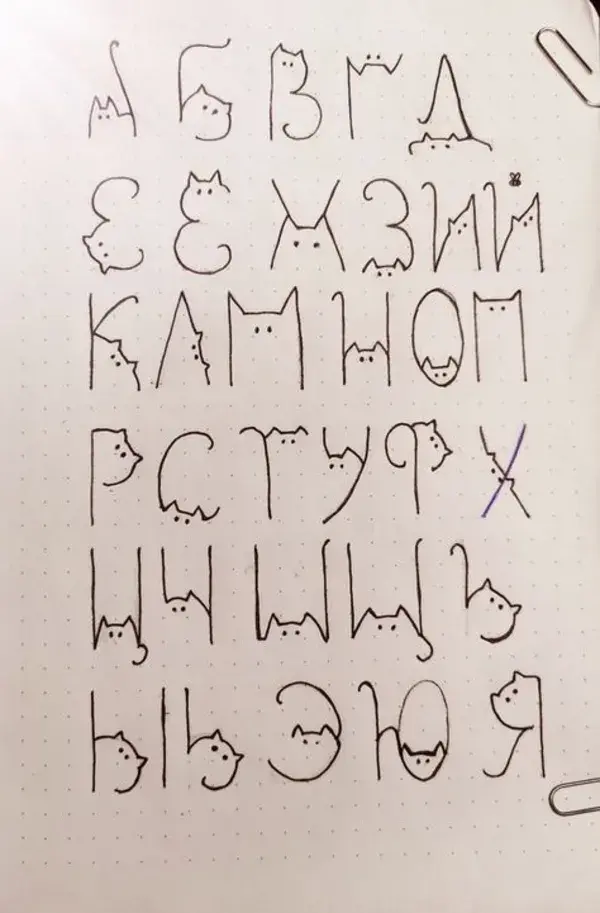 АБВГД
ЕЁЖЗИЙ
КЛМНОП
РСТУФХ
ЦЧШЩЪ
ЫЬЭЮЯ